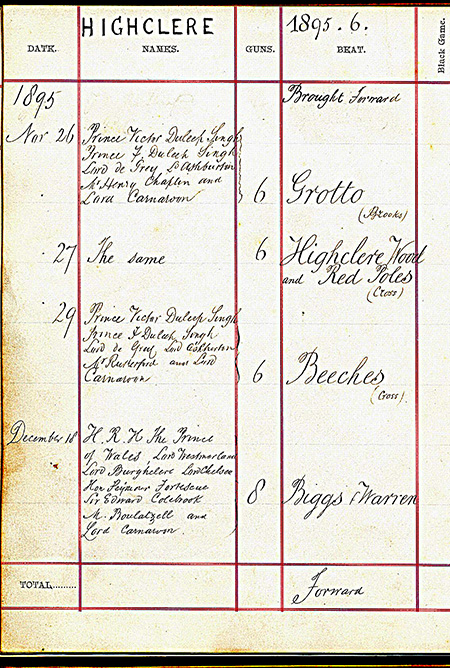 HIGHCLERE 1895.6.
DATE. NAMES. GUNS. BEAT. Black Game.
1895 Brought Forward
Nov 26 Prince Victor Duleep Singh
Prince F Duleep Singh
Lord de Grey Ld Ashburton
Mr Henry Chaplin and
Lord Carnarvon 6 Grotto
(Brooks)
27 The same 6 Highclere Wood
and Red Poles
(Cross)
29 Prince Victor Duleep Singh
Prince F Duleep Singh
Lord de Grey Lord Ashburton
Mr Rutherford and Lord
Carnarvon 6 Beeches
(Cross)
December 18 H.R.H The Prince
of Wales, Lord Westmorland
Lord Burghclere Lord Chelsea
Hon Seymour Fortescue
Sir Edward Colebrook
M. and
Lord Carnarvon. 8 Biggs & Warren
TOTAL......... Forward